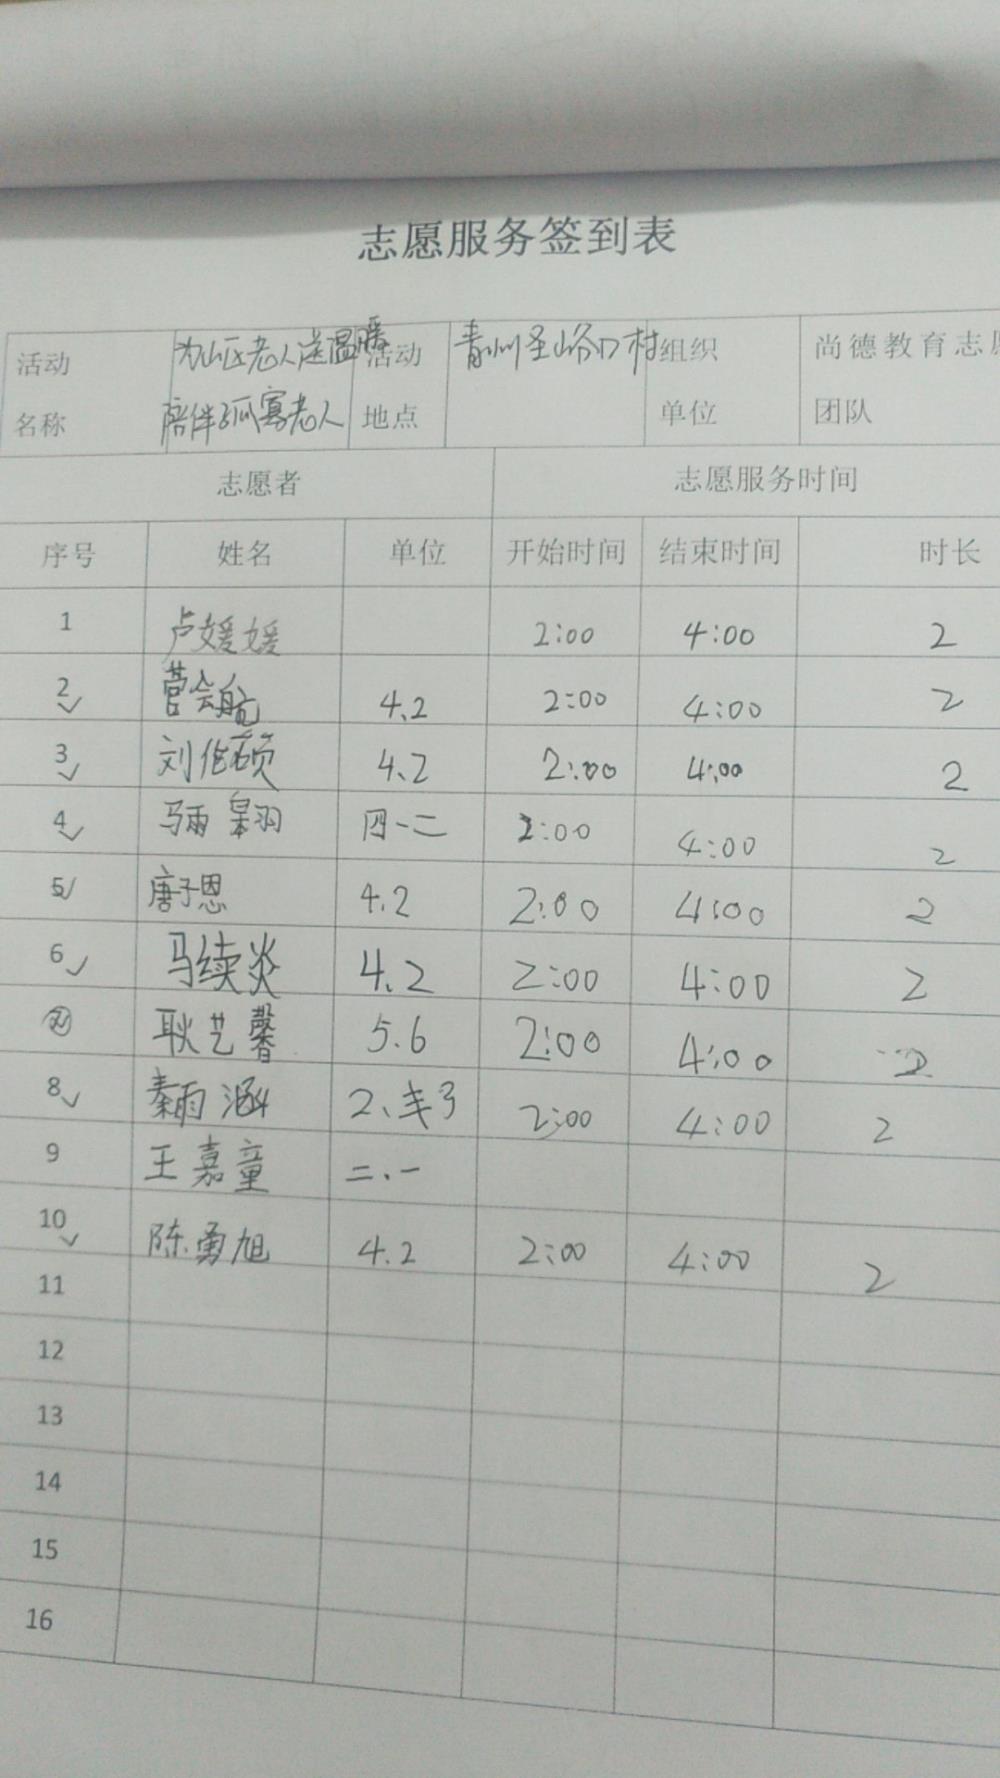 志愿服务签到表
活动名称 为山区老人送温暖 陪伴孤寡老人 活动地点 青州圣峪口村 组织单位 尚德教育志愿团队
志愿者 志愿服务时间
序号 姓名 单位 开始时间 结束时间 时长
1 卢媛媛 2:00 4:00 2
2 营会航 4.2 2:00 4:00 2
3 刘作硕 4.2 2:00 4:00 2
4 马雨翚羽 四-二 2:00 4:00 2
5 唐子恩 4.2 2:00 4:00 2
6 马续炎 4.2 2:00 4:00 2
耿艺馨 5.6 2:00 4:00 2
8 秦雨涵 2、 2:00 4:00 2
9 王嘉童 二.一
10 陈勇旭 4.2 2:00 4:00 2
11
12
13
14
15
16